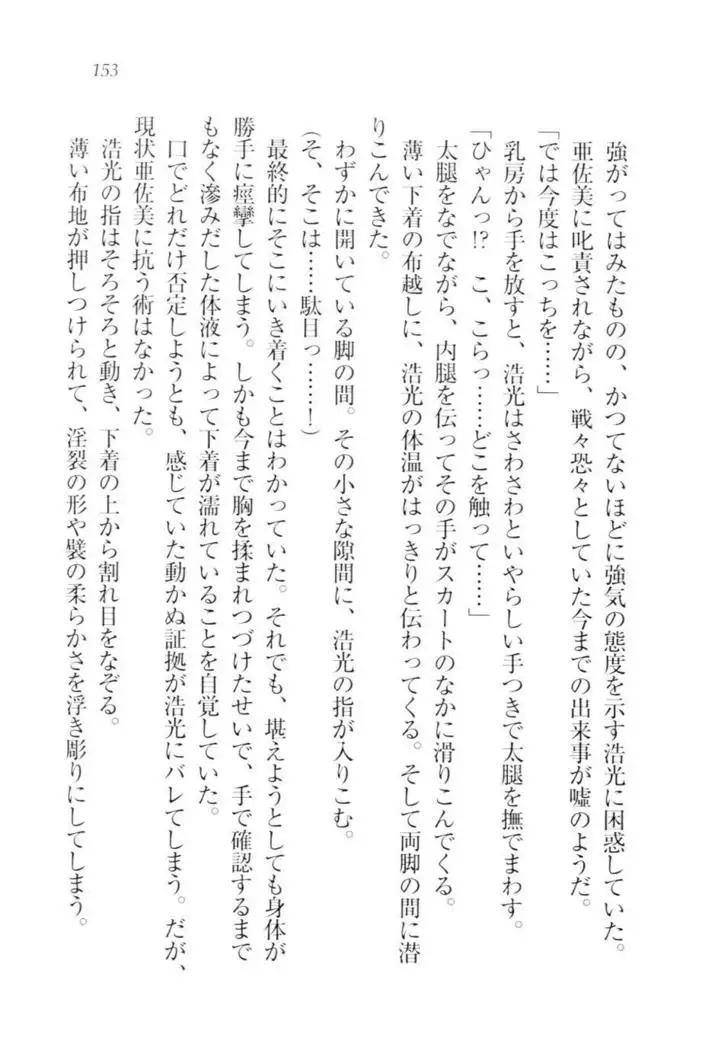 153
強がってはみたものの、かつてないほどに強気の態度を示す浩光に困惑していた。
亜佐美に叱責されながら、戦々恐々としていた今までの出来事が嘘のようだ。
「では今度はこっちを……」
乳房から手を放すと、浩光はさわさわといやらしい手つきで太腿を撫でまわす。
「ひゃんっ!? こ、こらっ……どこを触って……」
太腿をなでながら、内腿を伝ってその手がスカートのなかに滑りこんでくる。
薄い下着の布越しに、浩光の体温がはっきりと伝わってくる。そして両脚の間に潜
りこんできた。
わずかに開いている脚の間。その小さな隙間に、浩光の指が入りこむ。
(そ、そこは……駄目っ……!)
最終的にそこにいき着くことはわかっていた。それでも、堪えようとしても身体が
勝手に痙攣してしまう。しかも今まで胸を揉まれつづけたせいで、手で確認するまで
もなく滲みだした体液によって下着が濡れていることを自覚していた。
口でどれだけ否定しようとも、感じていた動かぬ証拠が浩光にバレてしまう。だが、
現状亜佐美に抗う術はなかった。
浩光の指はそろそろと動き、下着の上から割れ目をなぞる。
薄い布地が押しつけられて、淫裂の形や襞の柔らかさを浮き彫りにしてしまう。